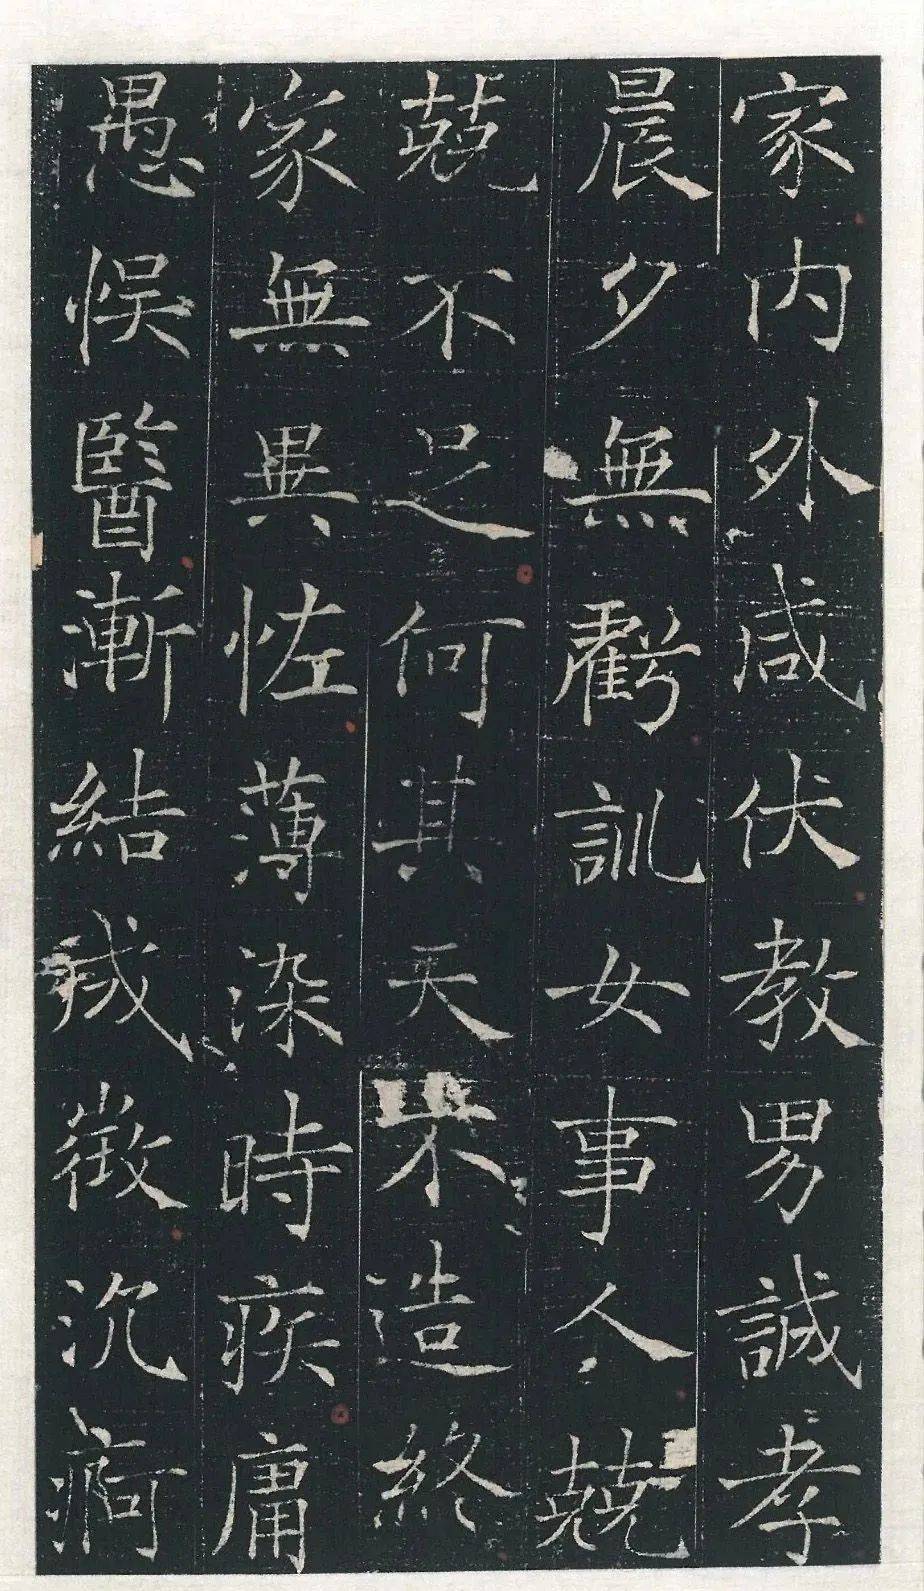 家内外咸伏教男誠孝
晨夕無虧訓女事人兢
兢不足何其天不造終
家無異恠薄染時疾庸
愚悮醫漸結徵沉痾